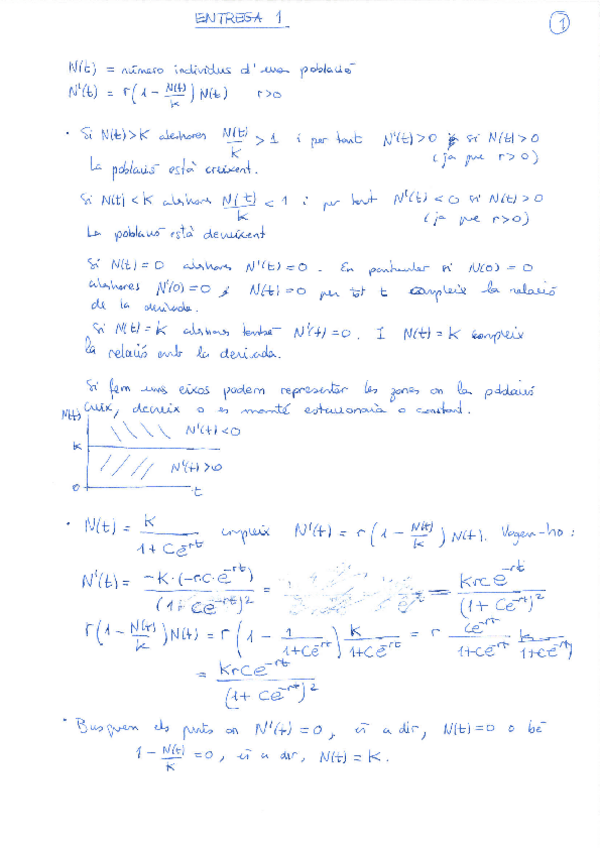 ENTREGA 1
1
N(t) = número individus d'una població
N'(t) = r(1 - N(t)/K) N(t)   r>0
· Si N(t)>K aleshores N(t)/K > 1 i per tant N'(t)>0 si N(t)>0
(ja que r>0)
La població està creixent.
Si N(t)<K aleshores N(t)/K < 1 i per tant N'(t)<0 si N(t)>0
(ja que r>0)
La població està decreixent
Si N(t)=0 aleshores N'(t)=0. En particular si N(0)=0
aleshores N'(0)=0 i N(t)=0 per tot t compleix la relació
de la derivada.
Si N(t)=K aleshores també N'(t)=0. I N(t)=K compleix
la relació amb la derivada.
Si fem uns eixos podem representar les zones on la població
creix, decreix o es manté estacionaria o constant.
N(t)
N'(t)<0
K
N'(t)>0
0
t
· N(t) = K/(1+Ce^-rt) compleix N'(t) = r(1 - N(t)/K) N(t). Vegem-ho:
N'(t) = -K·(-rC·e^-rt)/(1+Ce^-rt)^2 = = KrCe^-rt/(1+Ce^-rt)^2
r(1 - N(t)/K)N(t) = r(1 - 1/(1+Ce^-rt)) K/(1+Ce^-rt) = r Ce^-rt/(1+Ce^-rt) K/(1+Ce^-rt)
= KrCe^-rt/(1+Ce^-rt)^2
· Busquem els punts on N'(t)=0, és a dir, N(t)=0 o bé
1 - N(t)/K = 0, és a dir, N(t)=K.